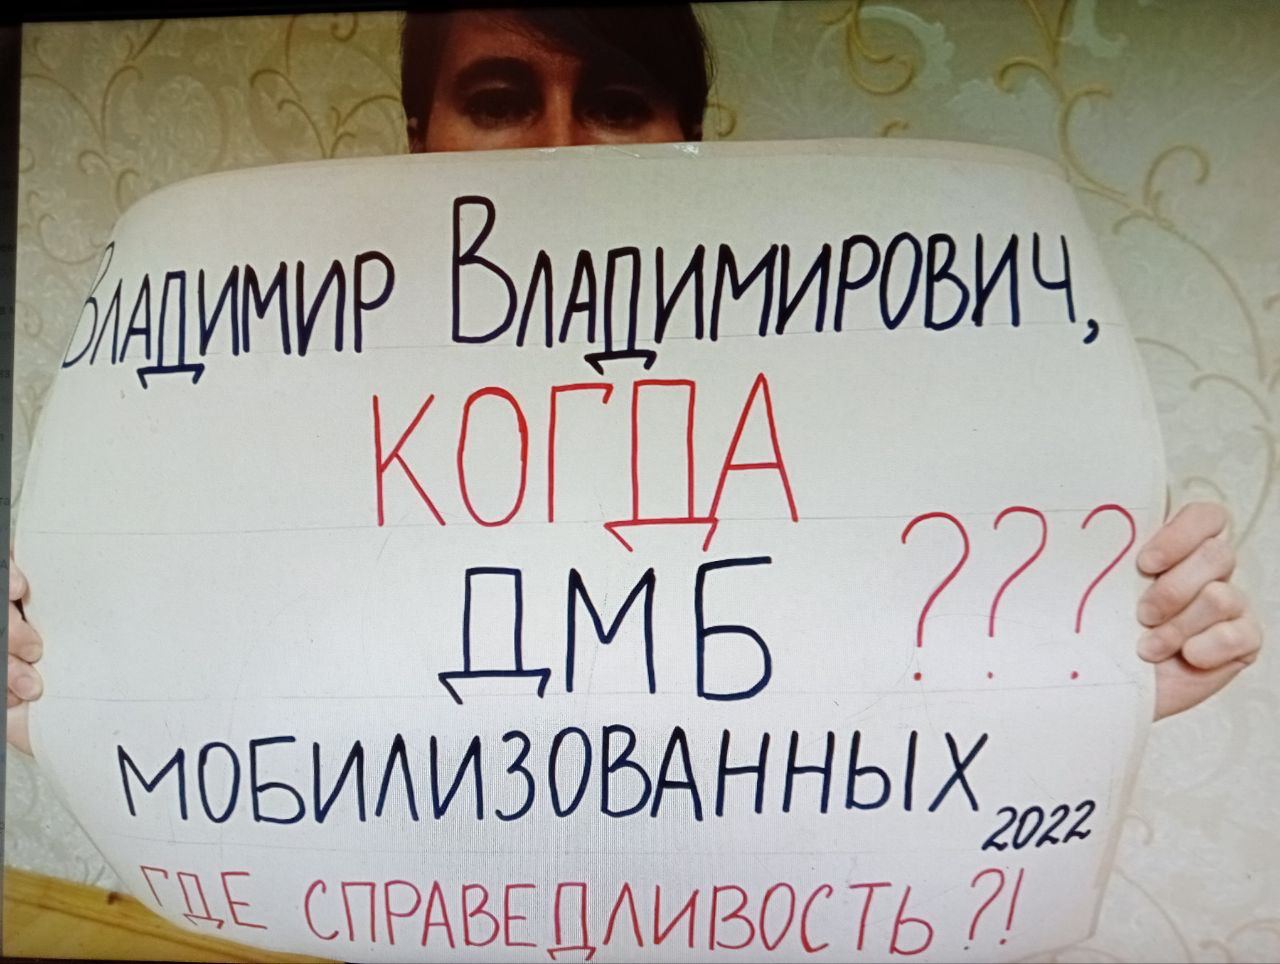 Владимир Владимирович,
КОГДА
ДМБ ???
МОБИЛИЗОВАННЫХ 2022
ГДЕ СПРАВЕДЛИВОСТЬ?!